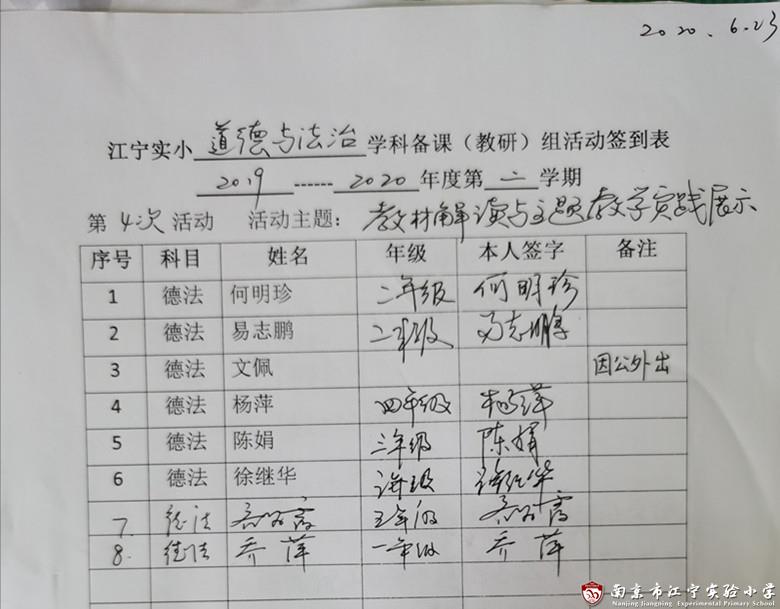 2020.6.23
江宁实小 道德与法治 学科备课（教研）组活动签到表
2019 ------ 2020 年度第 二 学期
第 4次 活动 活动主题： 教材解读与主题教学实践展示
序号 科目 姓名 年级 本人签字 备注
1 德法 何明珍 二年级 何明珍
2 德法 易志鹏 二年级 易志鹏
3 德法 文佩 因公外出
4 德法 杨萍 四年级 杨萍
5 德法 陈娟 三年级 陈娟
6 德法 徐继华 年级 徐继华
7. 德法 五年级
8. 德法 乔萍 一年级 乔萍
南京市江宁实验小学
Nanjing Jiangning Experimental Primary School